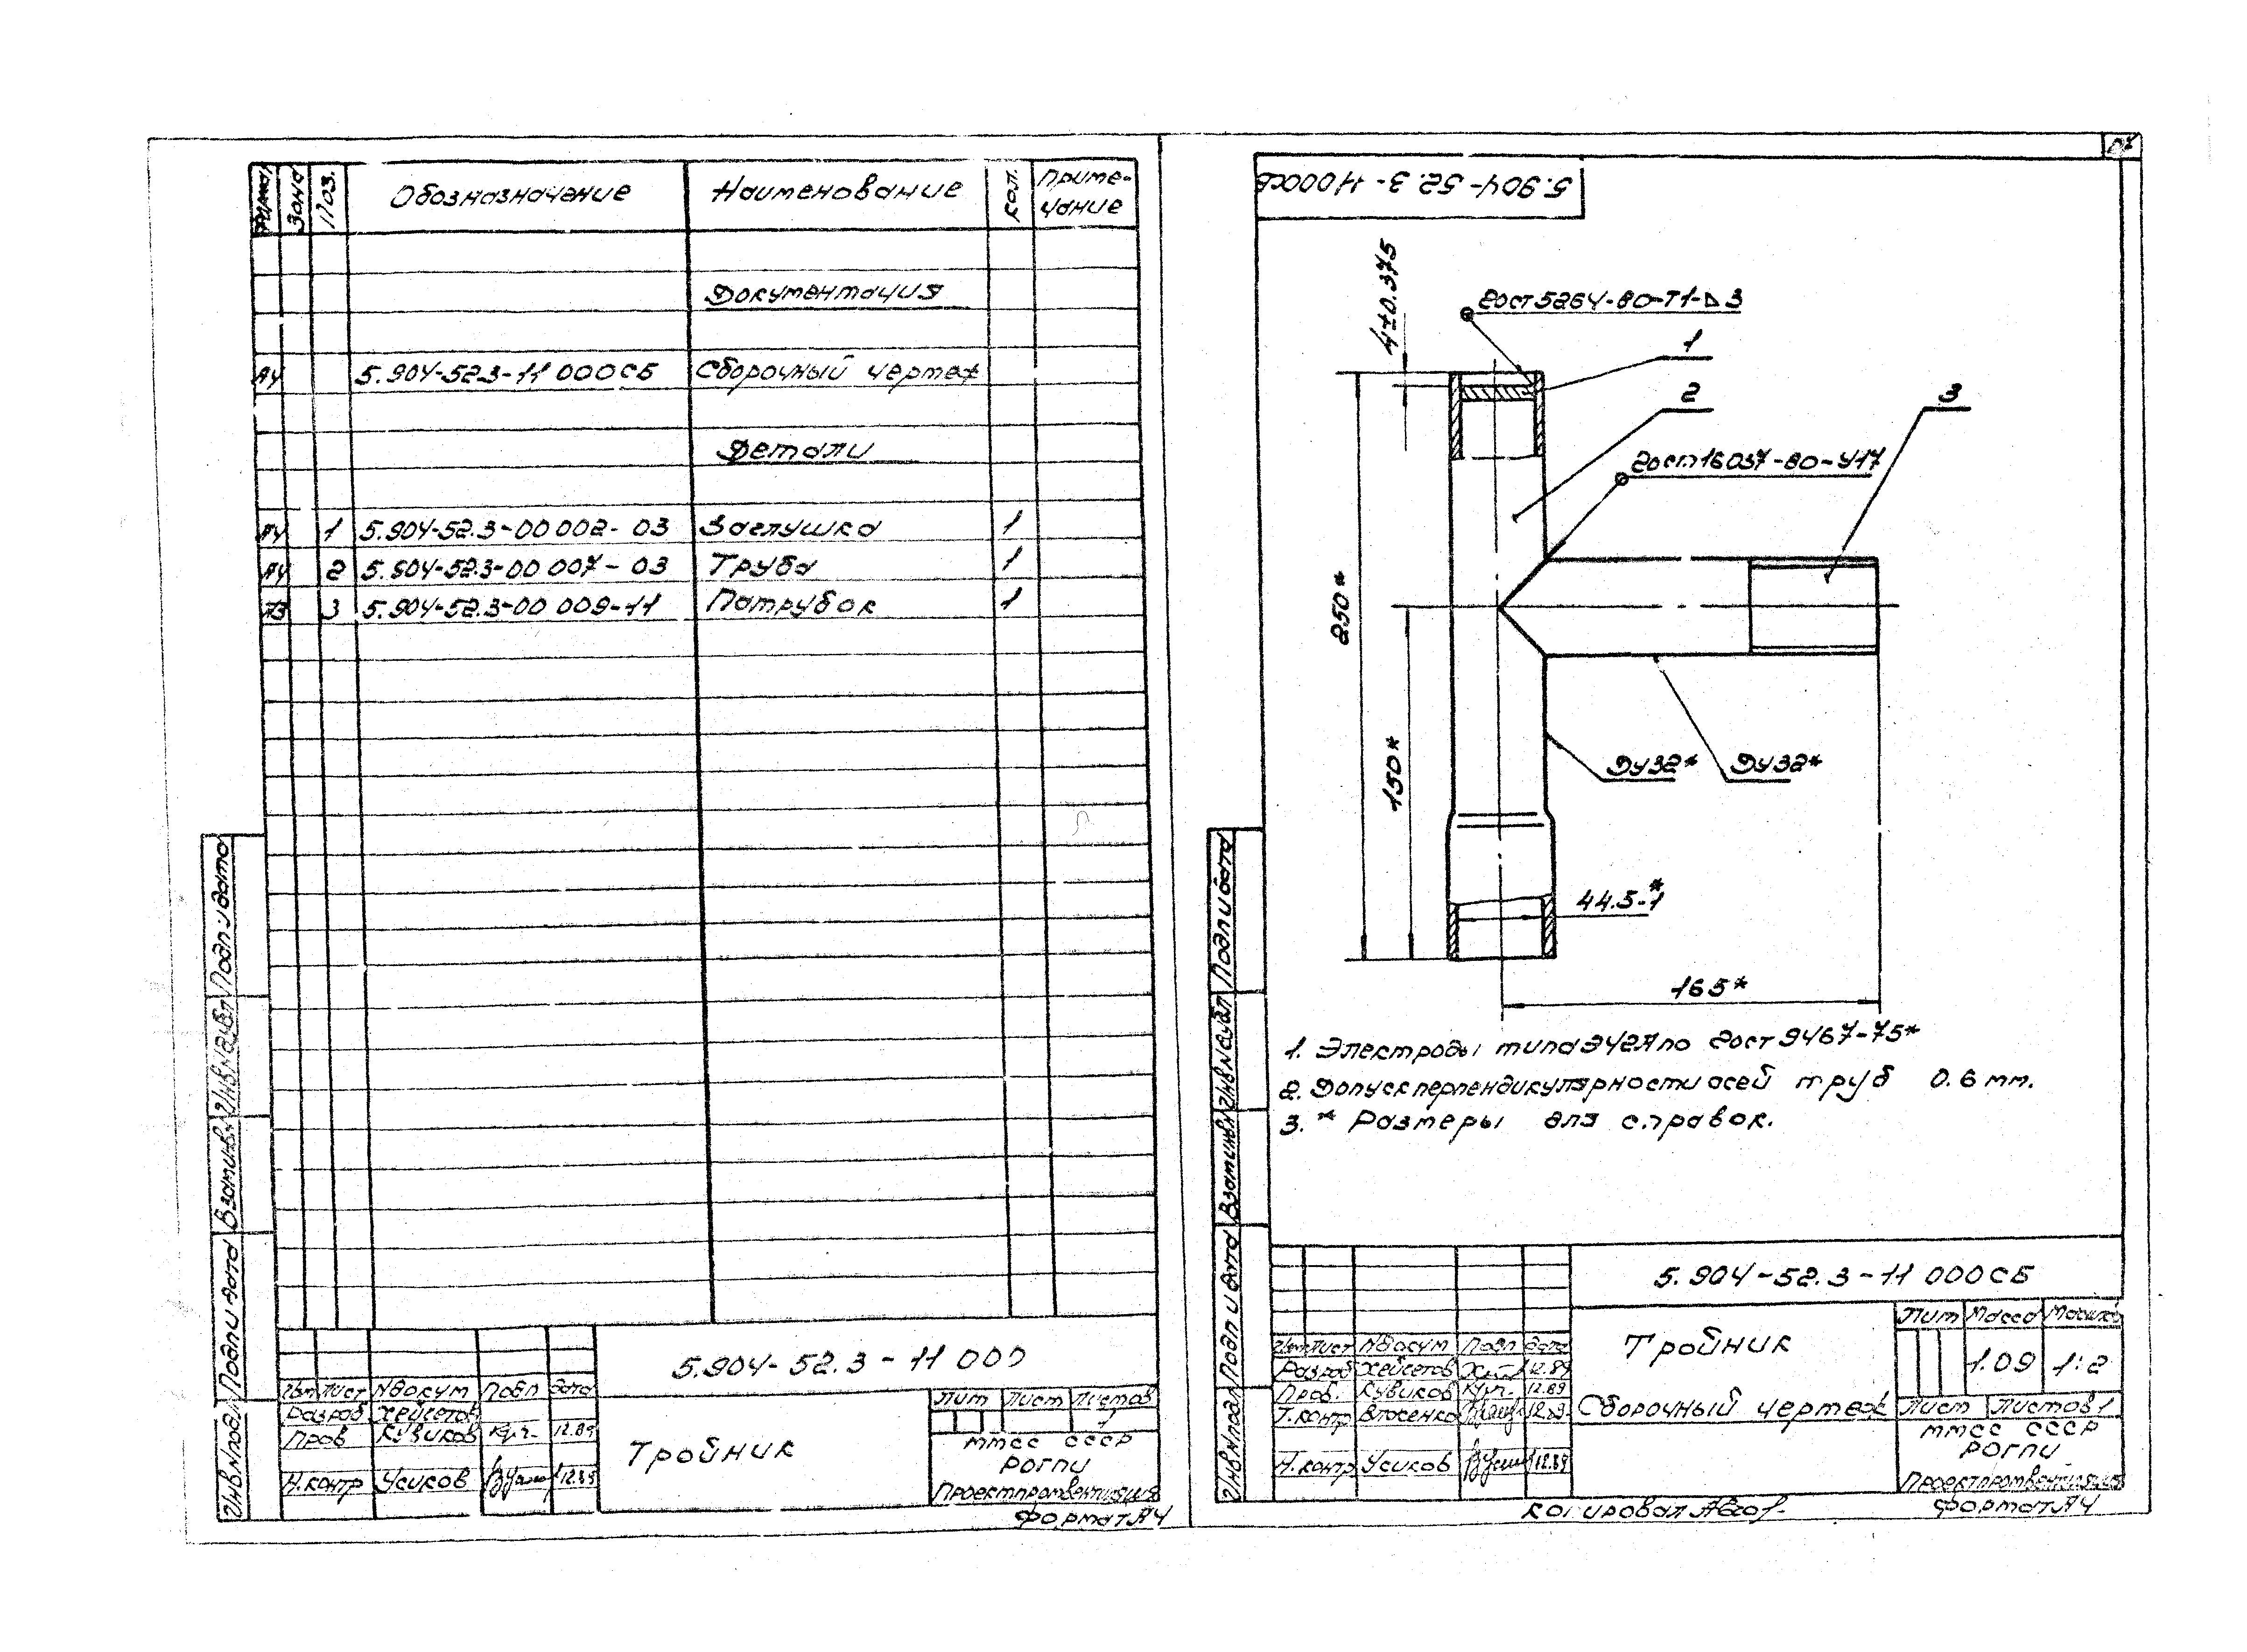 Формат Зона Поз. Обозназначение Наименование Кол. Приме-
чание
Документация
А4 5.904-52.3-11 000СБ Сборочный чертеж
Детали
А4 1 5.904-52.3-00 002-03 Заглушка 1
А4 2 5.904-52.3-00 007-03 Труба 1
А3 3 5.904-52.3-00 009-11 Патрубок 1
Подп и дата
Инв N дубл
Взам инв N
Подп и дата
Инв N подл
5.904-52.3-11 000
Изм Лист N докум Подп Дата
Разраб Хейсетов
Пров Кувиков 12.89
Н.контр Усиков 12.89
Тройник
Лит Лист Листов
1
ММСС СССР
РОГПИ
Проектпромвентиляция
Формат А4
5.904-52.3-11 000СБ
4±0.375
ГОСТ 5264-80-Т1-⊿3
1
2
3
ГОСТ 16037-80-У17
250*
150*
Ду32* Ду32*
44.5-1*
165*
1. Электроды типа Э42А по ГОСТ 9467-75*
2. Допуск перпендикулярности осей труб 0.6 мм.
3. * Размеры для справок.
Подп и дата
Инв N дубл
Взам инв N
Подп и дата
Инв N подл
5.904-52.3-11 000СБ
Изм Лист N докум Подп Дата
Разраб Хейсетов 12.89
Пров. Кувиков 12.89
Т.контр Власенко 12.89
Н.контр Усиков 12.89
Тройник
Сборочный чертеж
Лит Масса Масшт
1.09 1:2
Лист Листов 1
ММСС СССР
РОГПИ
Проектпромвентиляция
Копировал
Формат А4